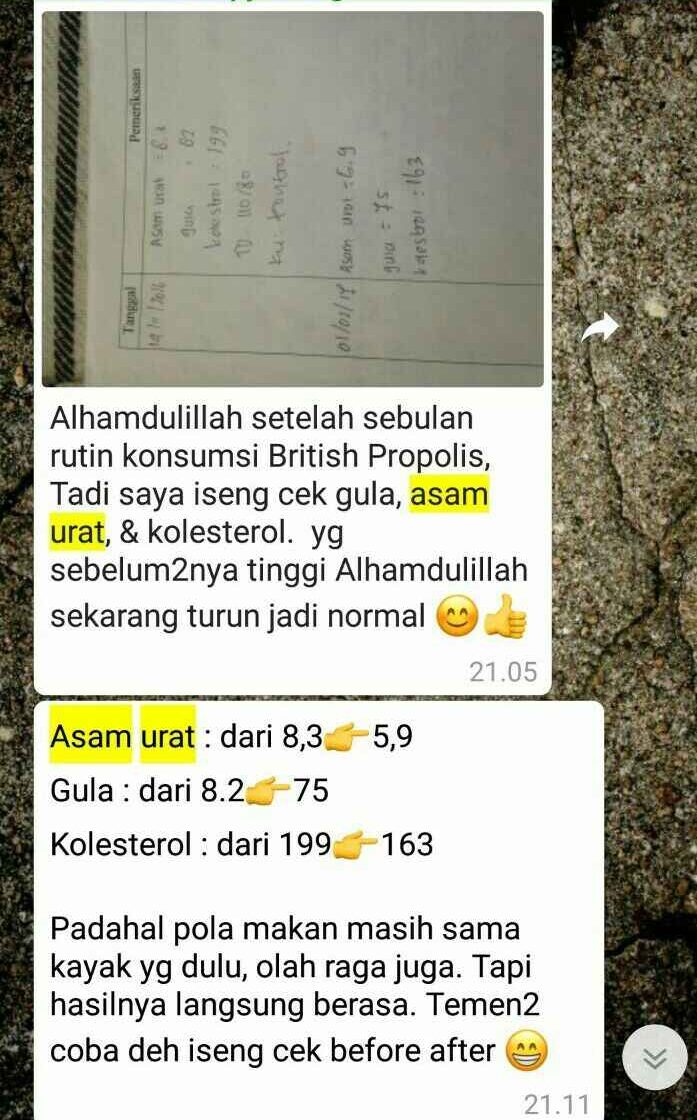 Tanggal
Pemeriksaan
Asam urat = 8.2
gula : 82
kolestrol : 199
TD 110/80
ku. kontrol.
01/02/17 Asam urat = 6.9
gula = 75
kolestrol : 163
Alhamdulillah setelah sebulan
rutin konsumsi British Propolis,
Tadi saya iseng cek gula, asam
urat, & kolesterol. yg
sebelum2nya tinggi Alhamdulillah
sekarang turun jadi normal 😊👍
21.05
Asam urat : dari 8,3👉5,9
Gula : dari 8.2👉75
Kolesterol : dari 199👉163
Padahal pola makan masih sama
kayak yg dulu, olah raga juga. Tapi
hasilnya langsung berasa. Temen2
coba deh iseng cek before after 😁
21.11